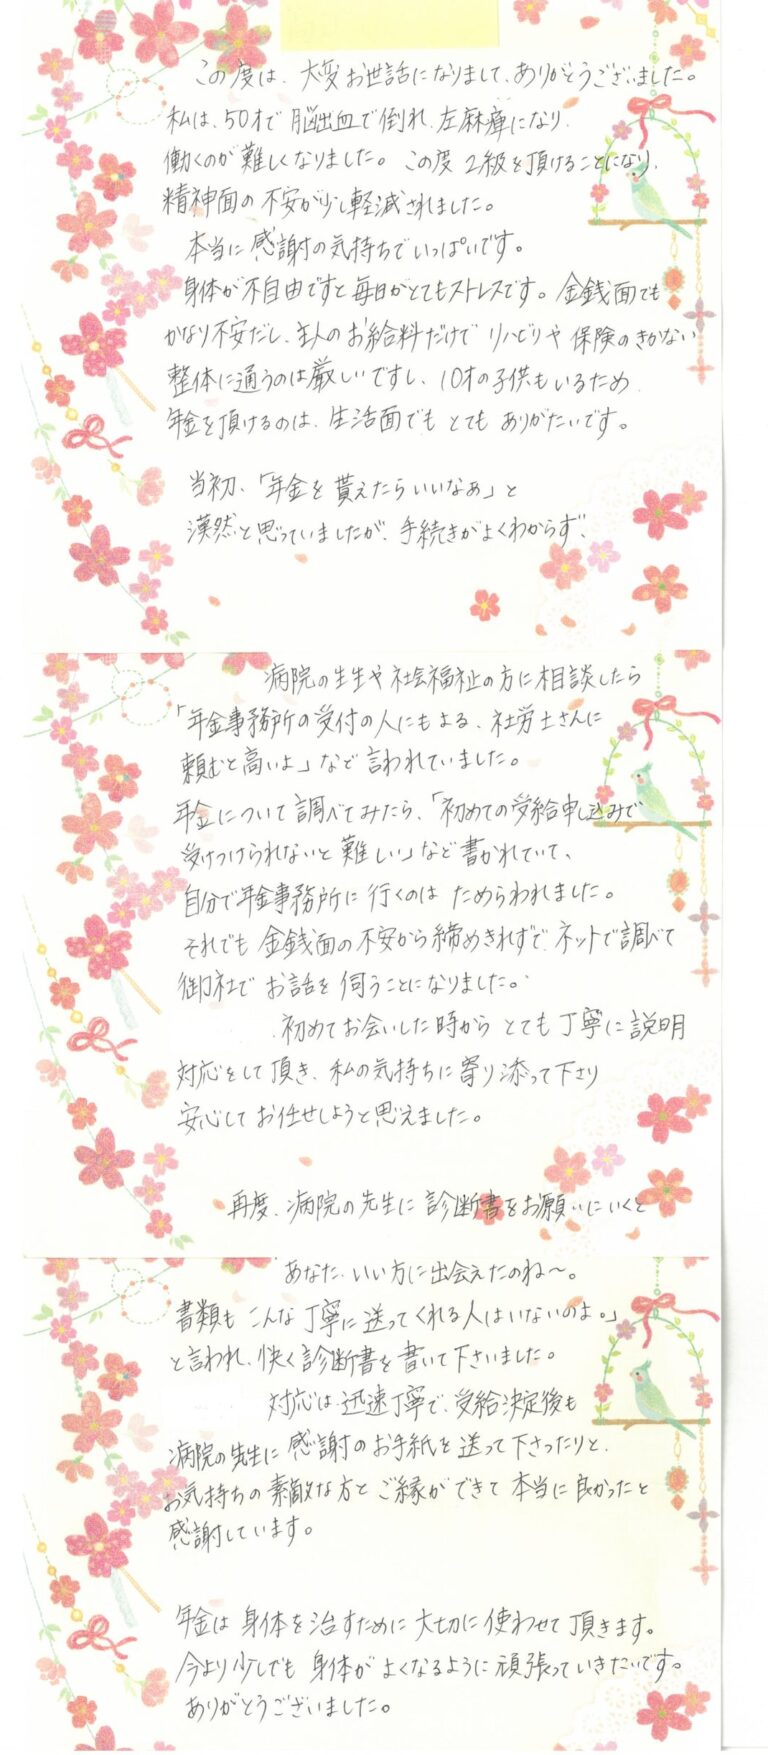 この度は、大変お世話になりまして、ありがとうございました。
私は、50才で脳出血で倒れ、左麻痺になり、
働くのが難しくなりました。この度2級を頂けることになり、
精神面の不安が少し軽減されました。
本当に感謝の気持ちでいっぱいです。
身体が不自由ですと毎日がとてもストレスです。金銭面でも
かなり不安だし、主人のお給料だけでリハビリや保険のきかない
整体に通うのは厳しいですし、10才の子供もいるため
年金を頂けるのは、生活面でもとてもありがたいです。
当初、「年金を貰えたらいいなぁ」と
漠然と思っていましたが、手続きがよくわからず、
病院の先生や社会福祉の方に相談したら
「年金事務所の受付の人にもよる、社労士さんに
頼むと高いよ」など言われていました。
年金について調べてみたら、「初めての受給申し込みで
受けつけられないと難しい」など書かれていて、
自分で年金事務所に行くのはためらわれました。
それでも金銭面の不安から締めきれずで、ネットで調べて
御社でお話を伺うことになりました。
初めてお会いした時からとても丁寧に説明
対応をして頂き、私の気持ちに寄り添って下さり
安心してお任せしようと思えました。
再度、病院の先生に診断書をお願いにいくと
あなた、いい方に出会えたのね〜。
書類もこんな丁寧に送ってくれる人はいないのよ。」
と言われ、快く診断書を書いて下さいました。
対応は迅速丁寧で、受給決定後も
病院の先生に感謝のお手紙を送って下さったりと、
お気持ちの素敵な方とご縁ができて本当に良かったと
感謝しています。
年金は身体を治すために大切に使わせて頂きます。
今より少しでも身体がよくなるように頑張っていきたいです。
ありがとうございました。